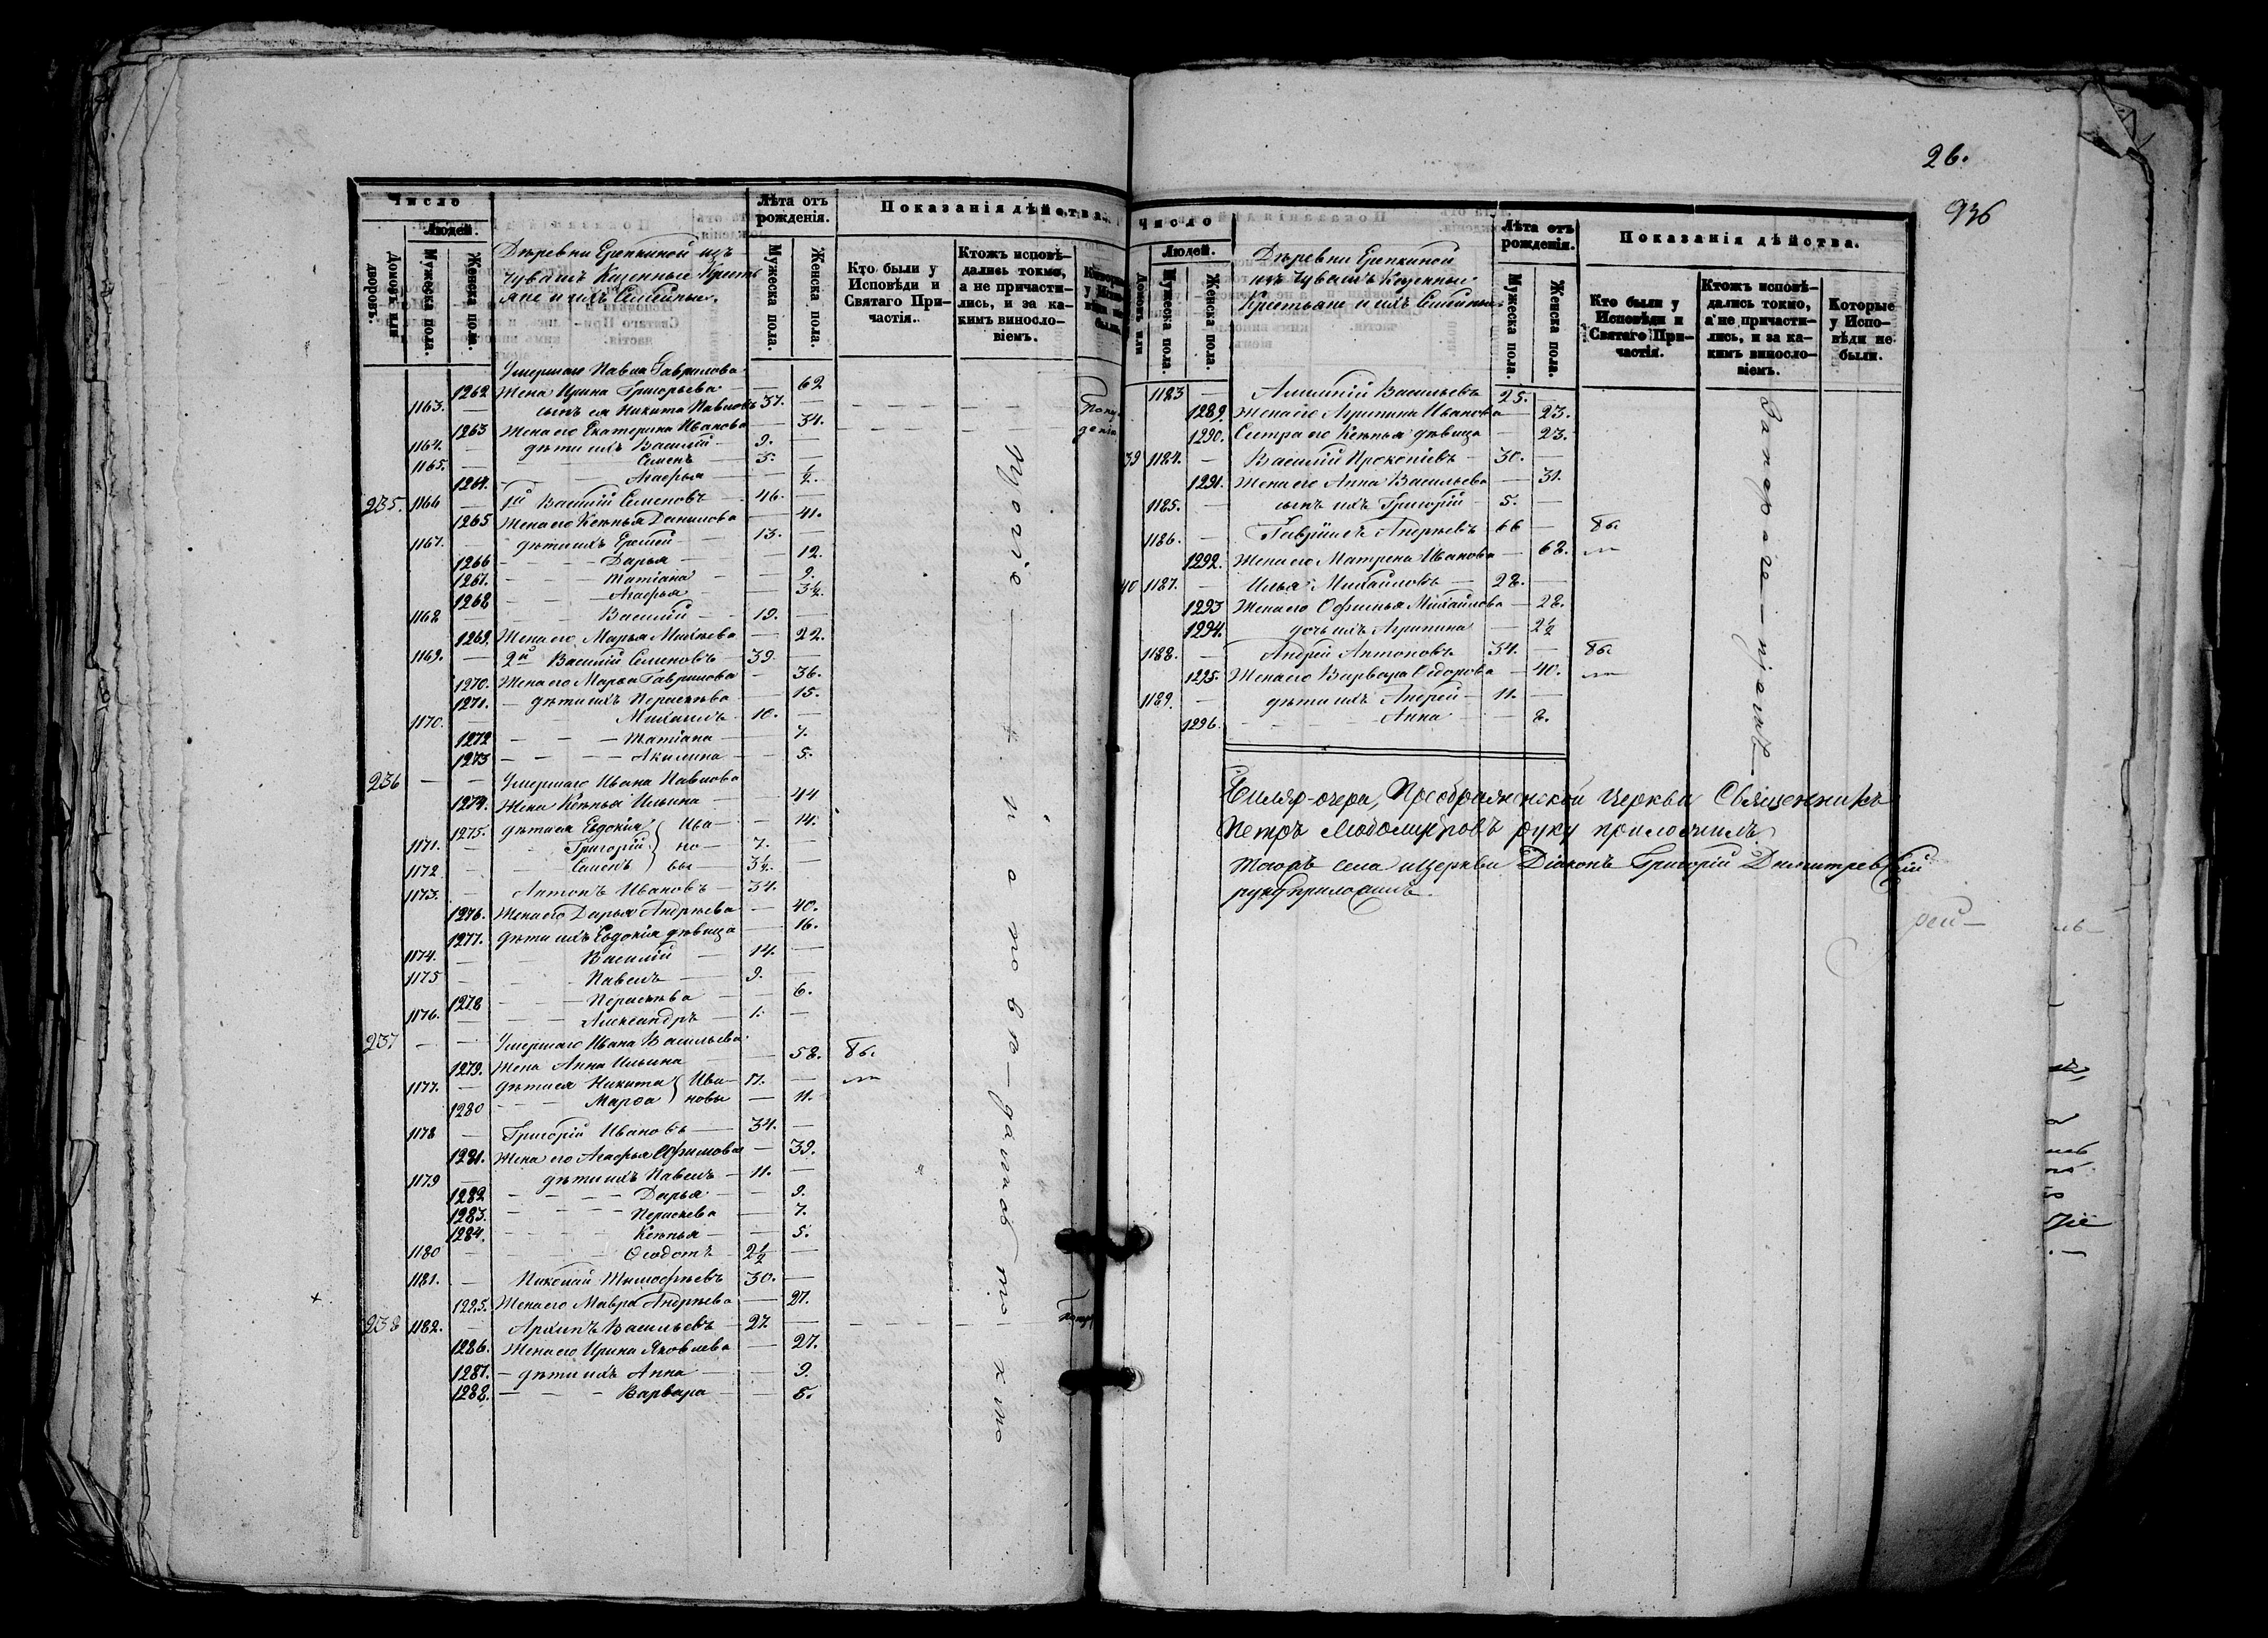 Число
Людей.
Домовъ или дворовъ.
Мужеска пола.
Женска пола.
Деревни Ерепкиной изъ
Чувашъ Казенные Кресть
яне и ихъ Семейные.
Лѣта отъ рожденія.
Мужеска пола.
Женска пола.
Показанія дѣйства.
Кто были у Исповѣди и Святаго Причастія.
Ктожъ исповѣдались токмо, а не причастились, и за какимъ винословіемъ.
Умершаго Павла Гаврилова
1262 Жена Ирина Григорьева — 62
1163. — сынъ ея Никита Павловъ 37. —
1263 Жена его Екатерина Иванова — 34.
1164. — дѣти ихъ Василій — 9. —
1165. — Семенъ — 3. —
1264. Агафья —
235. 1166 — 1й Василій Семеновъ — 46. —
1265 Жена его Ксенья Данилова — 41.
1167. — дѣти ихъ Еремей — 13. —
1266 — Дарья — 12.
1267. — Татіана — 9.
1268 — Агафья — 3½.
1168 — Василій — 19. —
1269. Жена его Марья Михѣева — 22.
1169. — 2й Василій Семеновъ — 39. —
1270. Жена его Марья Гаврилова — 36.
1271. — дѣти ихъ Параскева — 15.
1170. — Михаилъ — 10. —
1272 — Татіана — 7.
1273 — Акилина — 5.
236 — — Умершаго Ивана Павлова
1274. Жена Ксенья Ильина — 44
1275. дѣти ея Евдокія } Ива — 14.
1171. — Григорій } но — 7. —
1172 — Семенъ } вы — 3½. —
1173. — Антонъ Ивановъ — 34. —
1276. Жена его Дарья Андреева — 40.
1277. дѣти ихъ Евдокія дѣвица — 16.
1174. — Василій — 14. —
1175 — Павелъ — 9. —
1278 — Параскева — 6.
1176. — Александръ — 1. —
237 — — Умершаго Ивана Васильева
1279. Жена Анна Ильина — 58. бы
1177. — дѣти ея Никита } Ива — 17. — ли
1280 — Марѳа } новы — 11.
1178 — Григорій Ивановъ — 34. —
1281. Жена его Агафья Ефимова — 39.
1179 — дѣти ихъ Павелъ — 11. —
1282 — Дарья — 9.
1283. — Параскева — 7.
1284. — Ксенья — 5.
1180 — Ѳеодотъ — 2½ —
1181. — Николай Тимофеевъ 30. —
1285. Жена его Мавра Андреева — 27.
238 1182. — Архипъ Васильевъ — 27 —
1286. Жена его Ирина Яковлева — 27.
1287. — дѣти ихъ Анна — 9.
1288. — Варвара — 5.
26.
936
Число
Людей.
Домовъ или
Мужеска пола.
Женска пола.
Деревни Ерепкиной
изъ Чувашъ Казенные
Крестьяне и ихъ Семейные.
Лѣта отъ рожденія.
Мужеска пола.
Женска пола.
Показанія дѣйства.
Кто были у Исповѣди и Святаго Причастія.
Ктожъ исповѣдались токмо, а не причастились, и за какимъ винословіемъ.
Которые у Исповѣди не были.
1183 — Васильевъ 25. —
1289. Жена его Агрипина Иванова — 23.
1290. Сестра его Ксенья дѣвица — 23.
39 1184. — Василій Прокопіевъ — 30. —
1291. Жена его Анна Васильева — 31.
1185. — сынъ ихъ Григорій — 5. —
1186. — Гавріилъ Андреевъ 66 — бы
1292. Жена его Матрена Иванова — 68. ли
40 1187. — Илья Михайловъ — 28. —
1293 Жена его Офимья Михайлова — 28.
1294. дочь ихъ Агрипина — 2½
1188. — Андрей Антоновъ 34. — бы
1295. Жена его Варвара Ѳедорова — 40. ли
1189. — дѣти ихъ Андрей — 11. —
1296. — Анна — 8.
Преображенской Церкви Священникъ
Петръ Любомудровъ руку приложилъ.
Тогожъ села и Церкви Діаконъ Григорій Димитревскій
руку приложилъ.